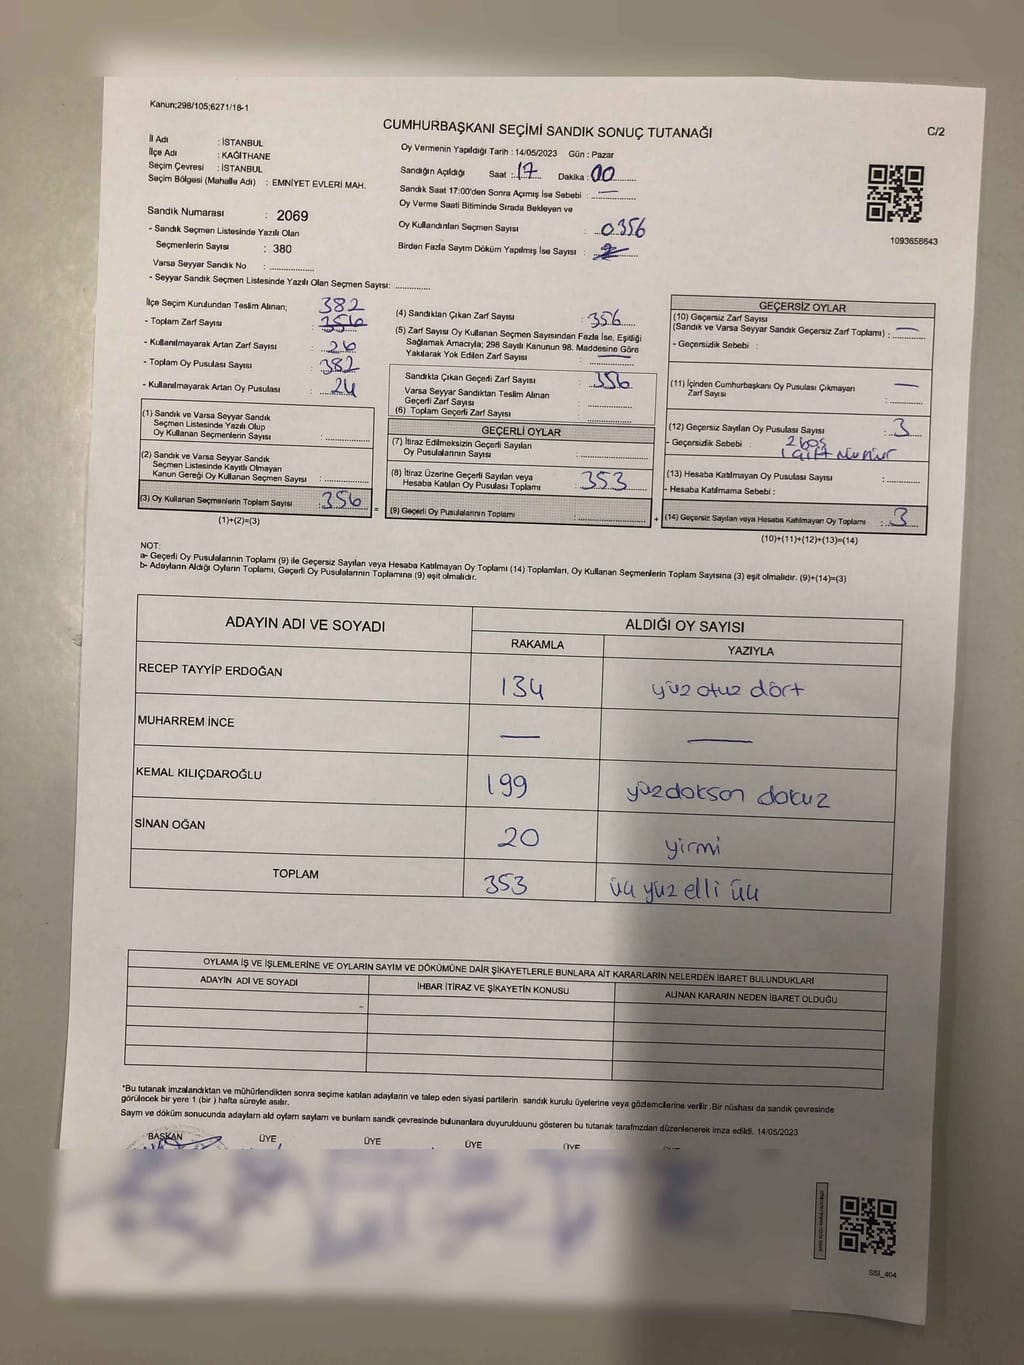 Kanun;298/105;6271/16-1
CUMHURBAŞKANI SEÇİMİ SANDIK SONUÇ TUTANAĞI
C/2
İl Adı : İSTANBUL
İlçe Adı : KAĞITHANE
Seçim Çevresi : İSTANBUL
Seçim Bölgesi (Mahalle Adı) : EMNİYET EVLERİ MAH.
Oy Vermenin Yapıldığı Tarih : 14/05/2023 Gün : Pazar
Sandığın Açıldığı Saat : 17 Dakika : 00
Sandık Saat 17:00'den Sonra Açımış İse Sebebi : —
Oy Verme Saati Bitiminde Sırada Bekleyen ve
Oy Kullandırılan Seçmen Sayısı : 0356
Birden Fazla Sayım Döküm Yapılmış İse Sayısı :
1093658643
Sandık Numarası : 2069
- Sandık Seçmen Listesinde Yazılı Olan
Seçmenlerin Sayısı : 380
Varsa Seyyar Sandık No :
- Seyyar Sandık Seçmen Listesinde Yazılı Olan Seçmen Sayısı:
İlçe Seçim Kurulundan Teslim Alınan; 382
- Toplam Zarf Sayısı : 356
- Kullanılmayarak Artan Zarf Sayısı : 26
- Toplam Oy Pusulası Sayısı : 382
- Kullanılmayarak Artan Oy Pusulası : 24
(1) Sandık ve Varsa Seyyar Sandık
Seçmen Listesinde Yazılı Olup
Oy Kullanan Seçmenlerin Sayısı :
(2) Sandık ve Varsa Seyyar Sandık
Seçmen Listesinde Kayıtlı Olmayan
Kanun Gereği Oy Kullanan Seçmen Sayısı :
(3) Oy Kullanan Seçmenlerin Toplam Sayısı : 356
(1)+(2)=(3)
(4) Sandıktan Çıkan Zarf Sayısı : 356
(5) Zarf Sayısı Oy Kullanan Seçmen Sayısından Fazla İse, Eşitliği
Sağlamak Amacıyla; 298 Sayılı Kanunun 98. Maddesine Göre
Yakılarak Yok Edilen Zarf Sayısı : —
Sandıkta Çıkan Geçerli Zarf Sayısı : 356
Varsa Seyyar Sandıktan Teslim Alınan
Geçerli Zarf Sayısı :
(6) Toplam Geçerli Zarf Sayısı :
GEÇERLİ OYLAR
(7) İtiraz Edilmeksizin Geçerli Sayılan
Oy Pusulalarının Sayısı :
(8) İtiraz Üzerine Geçerli Sayılan veya
Hesaba Katılan Oy Pusulası Toplamı : 353
= (9) Geçerli Oy Pusulalarının Toplamı :
GEÇERSİZ OYLAR
(10) Geçersiz Zarf Sayısı
(Sandık ve Varsa Seyyar Sandık Geçersiz Zarf Toplamı) : —
- Geçersizlik Sebebi :
(11) İçinden Cumhurbaşkanı Oy Pusulası Çıkmayan
Zarf Sayısı : —
(12) Geçersiz Sayılan Oy Pusulası Sayısı : 3
- Geçersizlik Sebebi : 2 boş
1 çift mühür
(13) Hesaba Katılmayan Oy Pusulası Sayısı :
- Hesaba Katılmama Sebebi :
+ (14) Geçersiz Sayılan veya Hesaba Katılmayan Oy Toplamı : 3
(10)+(11)+(12)+(13)=(14)
NOT:
a- Geçerli Oy Pusulalarının Toplamı (9) ile Geçersiz Sayılan veya Hesaba Katılmayan Oy Toplamı (14) Toplamları, Oy Kullanan Seçmenlerin Toplam Sayısına (3) eşit olmalıdır. (9)+(14)=(3)
b- Adayların Aldığı Oyların Toplamı, Geçerli Oy Pusulalarının Toplamına (9) eşit olmalıdır.
ADAYIN ADI VE SOYADI
ALDIĞI OY SAYISI
RAKAMLA
YAZIYLA
RECEP TAYYİP ERDOĞAN 134 yüz otuz dört
MUHARREM İNCE — —
KEMAL KILIÇDAROĞLU 199 yüzdoksan dokuz
SİNAN OĞAN 20 yirmi
TOPLAM 353 üç yüz elli üç
OYLAMA İŞ VE İŞLEMLERİNE VE OYLARIN SAYIM VE DÖKÜMÜNE DAİR ŞİKAYETLERLE BUNLARA AİT KARARLARIN NELERDEN İBARET BULUNDUKLARI
ADAYIN ADI VE SOYADI
İHBAR İTİRAZ VE ŞİKAYETİN KONUSU
ALINAN KARARIN NEDEN İBARET OLDUĞU
*Bu tutanak imzalandıktan ve mühürlendikten sonra seçime katılan adayların ve talep eden siyasi partilerin sandık kurulu üyelerine veya gözlemcilerine verilir .Bir nüshası da sandık çevresinde
görülecek bir yere 1 (bir ) hafta süreyle asılır.
Sayım ve döküm sonucunda adayların aldı oyların sayıların ve bunların sandk çevresinde bulunanlara duyurulduunu gösteren bu tutanak tarafmzdan düzenlenerek imza edildi. 14/05/2023
BAŞKAN ÜYE ÜYE ÜYE ÜYE
SSI_404